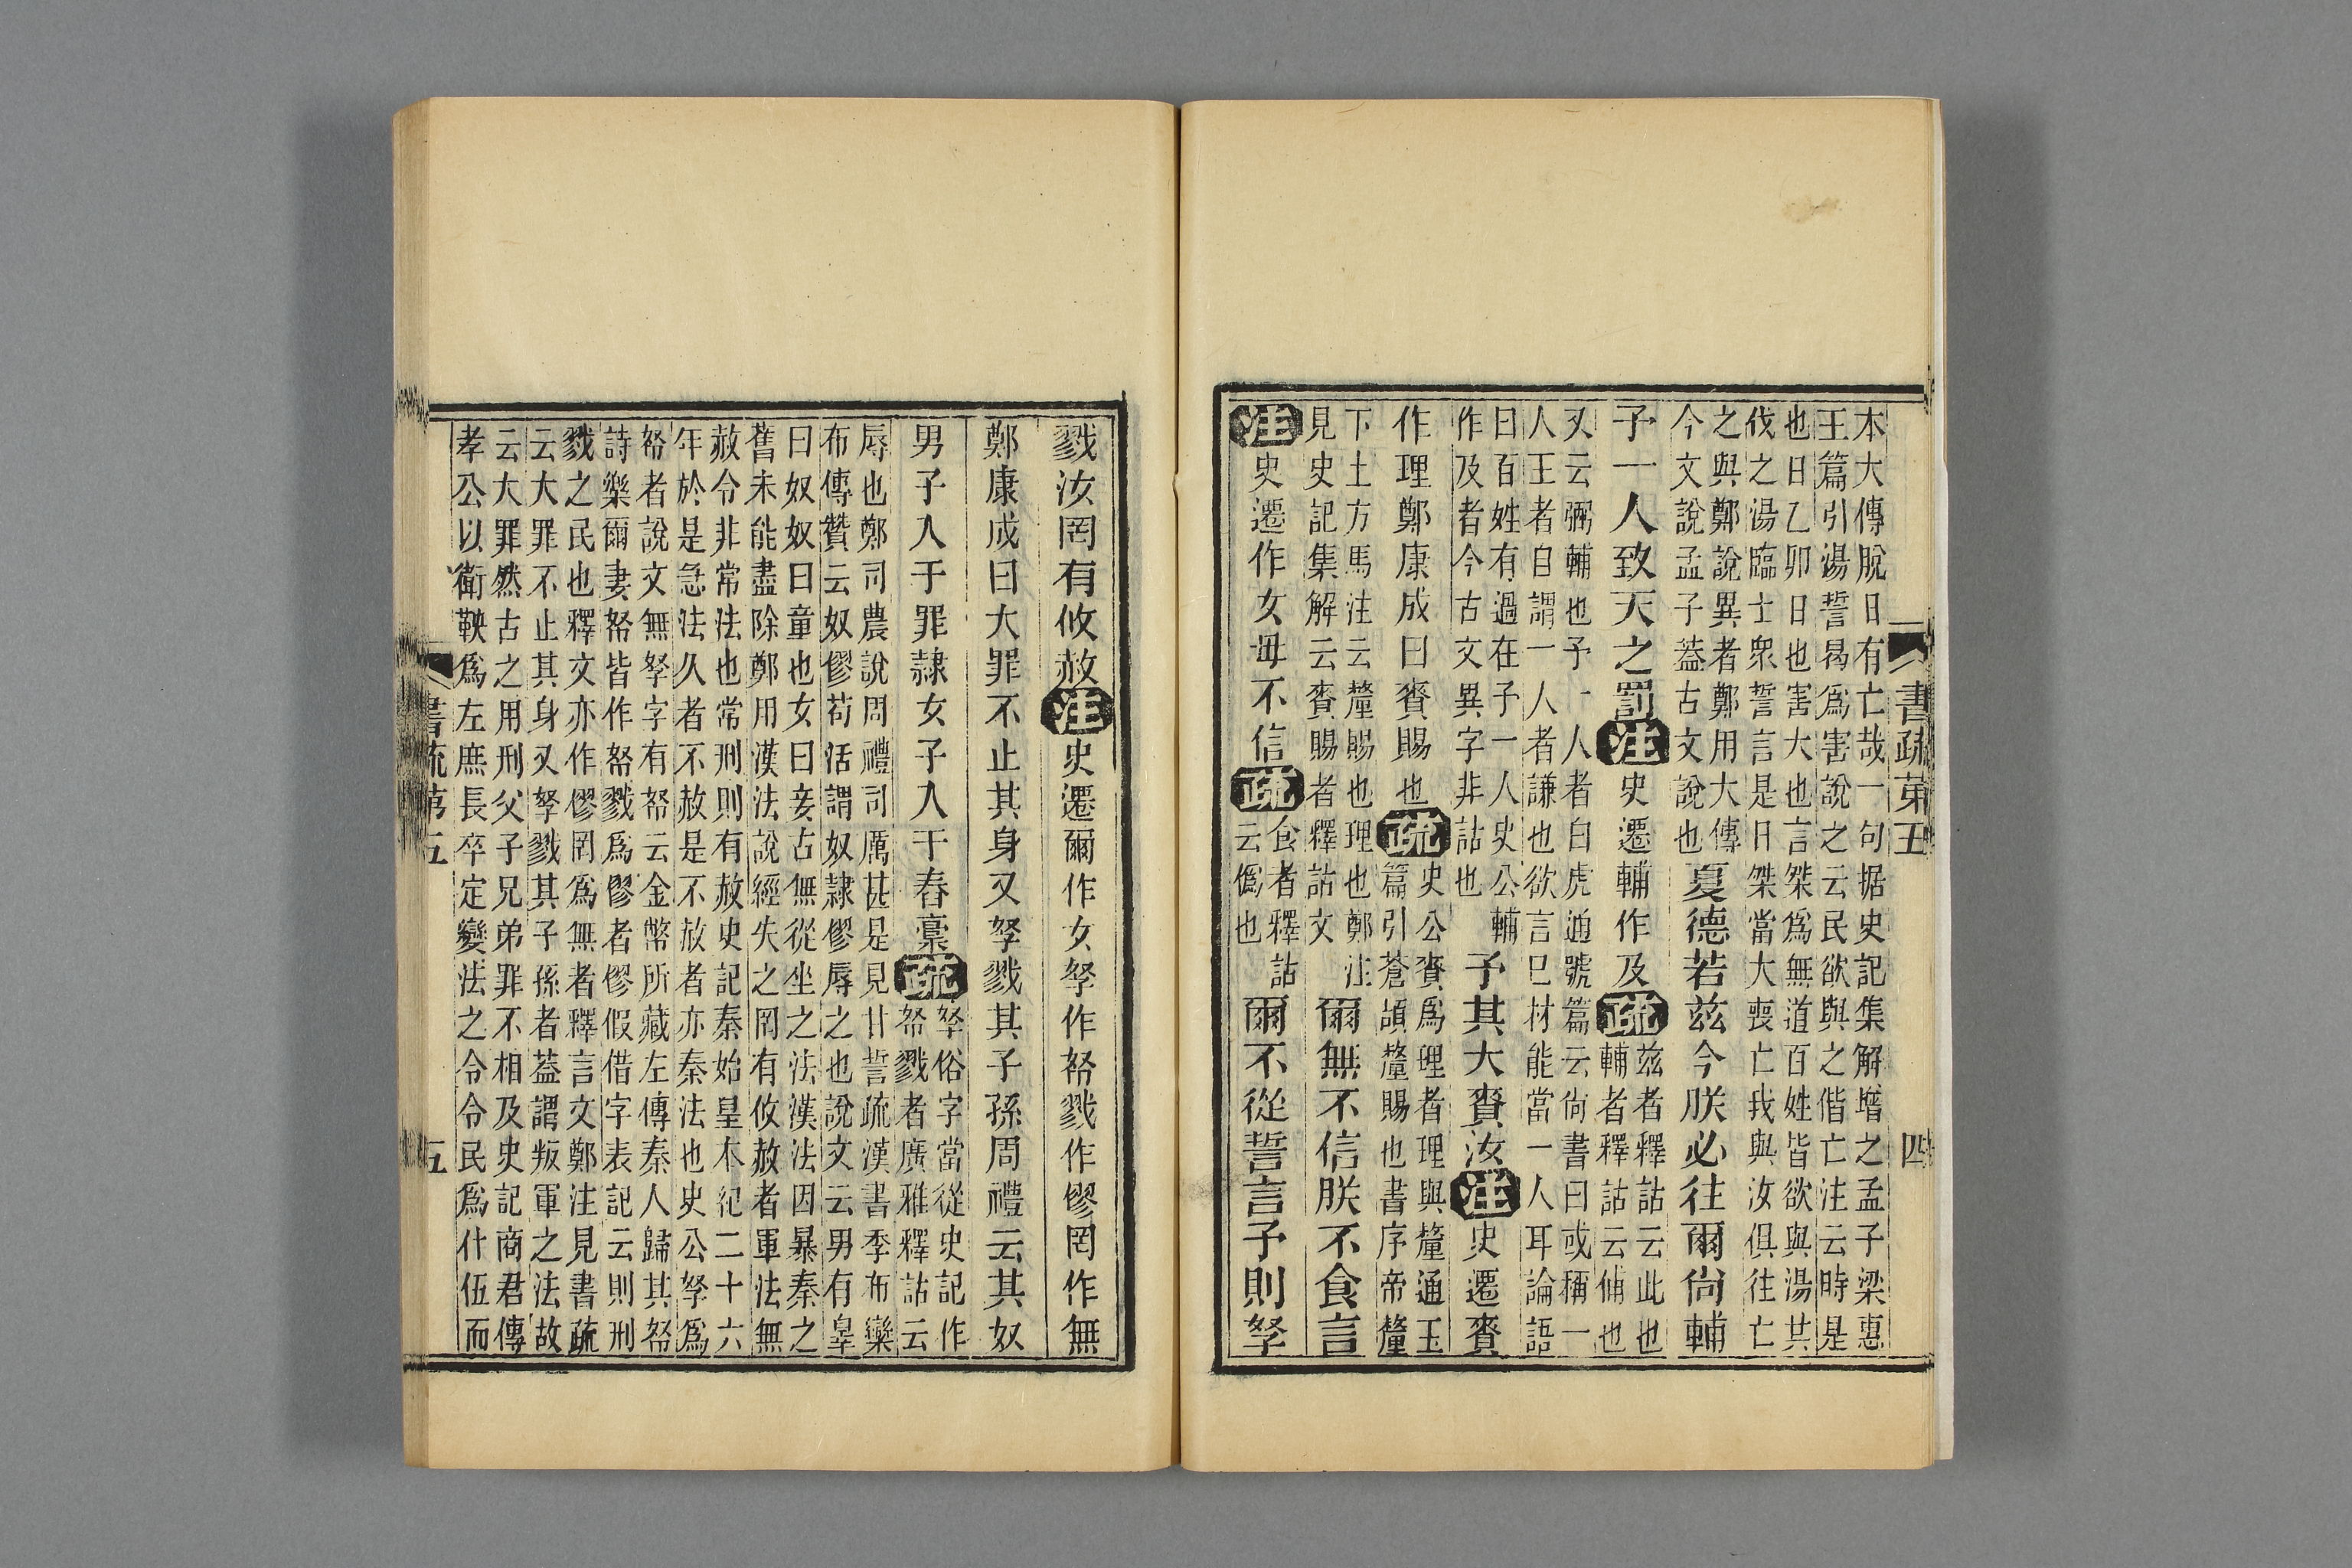 書疏第五 四
本大傳脫日有亡哉一句据史記集解增之孟子梁惠
王篇引湯誓曷爲害說之云民欲與之偕亡注云時是
也日乙卯日也害大也言桀爲無道百姓皆欲與湯共
伐之湯臨士衆誓言是日桀當大喪亡我與汝俱往亡
之與鄭說異者鄭用大傳
今文說孟子蓋古文說也
夏德若茲今朕必往爾尙輔
予一人致天之罰注史遷輔作及疏
茲者釋詁云此也
輔者釋詁云俌也
又云弼輔也予一人者白虎通號篇云尙書曰或稱一
人王者自謂一人者謙也欲言已材能當一人耳論語
曰百姓有過在予一人史公輔
作及者今古文異字非詁也
予其大賚汝注史遷賚
作理鄭康成曰賚賜也疏
史公賚爲理者理與釐通玉
篇引蒼頡釐賜也書序帝釐
下土方馬注云釐賜也理也鄭注
見史記集解云賚賜者釋詁文
爾無不信朕不食言
注史遷作女毋不信疏
食者釋詁
云僞也
爾不從誓言予則孥
戮汝罔有攸赦注史遷爾作女孥作帑戮作僇罔作無
鄭康成曰大罪不止其身又孥戮其子孫周禮云其奴
男子入于罪隸女子入于舂稾疏
孥俗字當從史記作
帑戮者廣雅釋詁云
辱也鄭司農說周禮司厲甚是見甘誓疏漢書季布欒
布傳贊云奴僇苟活謂奴隸僇辱之也說文云男有辠
曰奴奴曰童也女曰妾古無從坐之法漢法因暴秦之
舊未能盡除鄭用漢法說經失之罔有攸赦者軍法無
赦令非常法也常刑則有赦史記秦始皇本紀二十六
年於是急法久者不赦是不赦者亦秦法也史公孥爲
帑者說文無孥字有帑云金幣所藏左傳秦人歸其帑
詩樂爾妻帑皆作帑戮爲僇者僇假借字表記云則刑
戮之民也釋文亦作僇罔爲無者釋言文鄭注見書疏
云大罪不止其身又孥戮其子孫者蓋謂叛軍之法故
云大罪然古之用刑父子兄弟罪不相及史記商君傳
孝公以衛鞅爲左庶長卒定變法之令令民爲什伍而
書疏第五 五